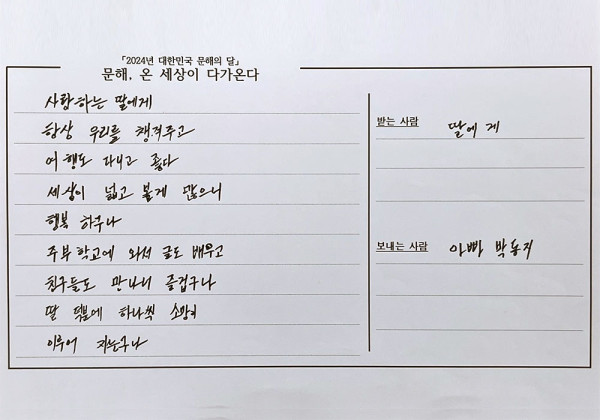 「2024년 대한민국 문해의 달」
문해, 온 세상이 다가온다
사랑하는 딸에게
항상 우리를 챙겨주고
여행도 다니고 좋다
세상이 넓고 볼게 많으니
행복 하구나
주부학교에 와서 글도 배우고
친구들도 만나니 즐겁구나
딸 덕분에 하나씩 소망이
이루어 지는구나
받는 사람 딸에게
보내는 사람 아빠 박동지